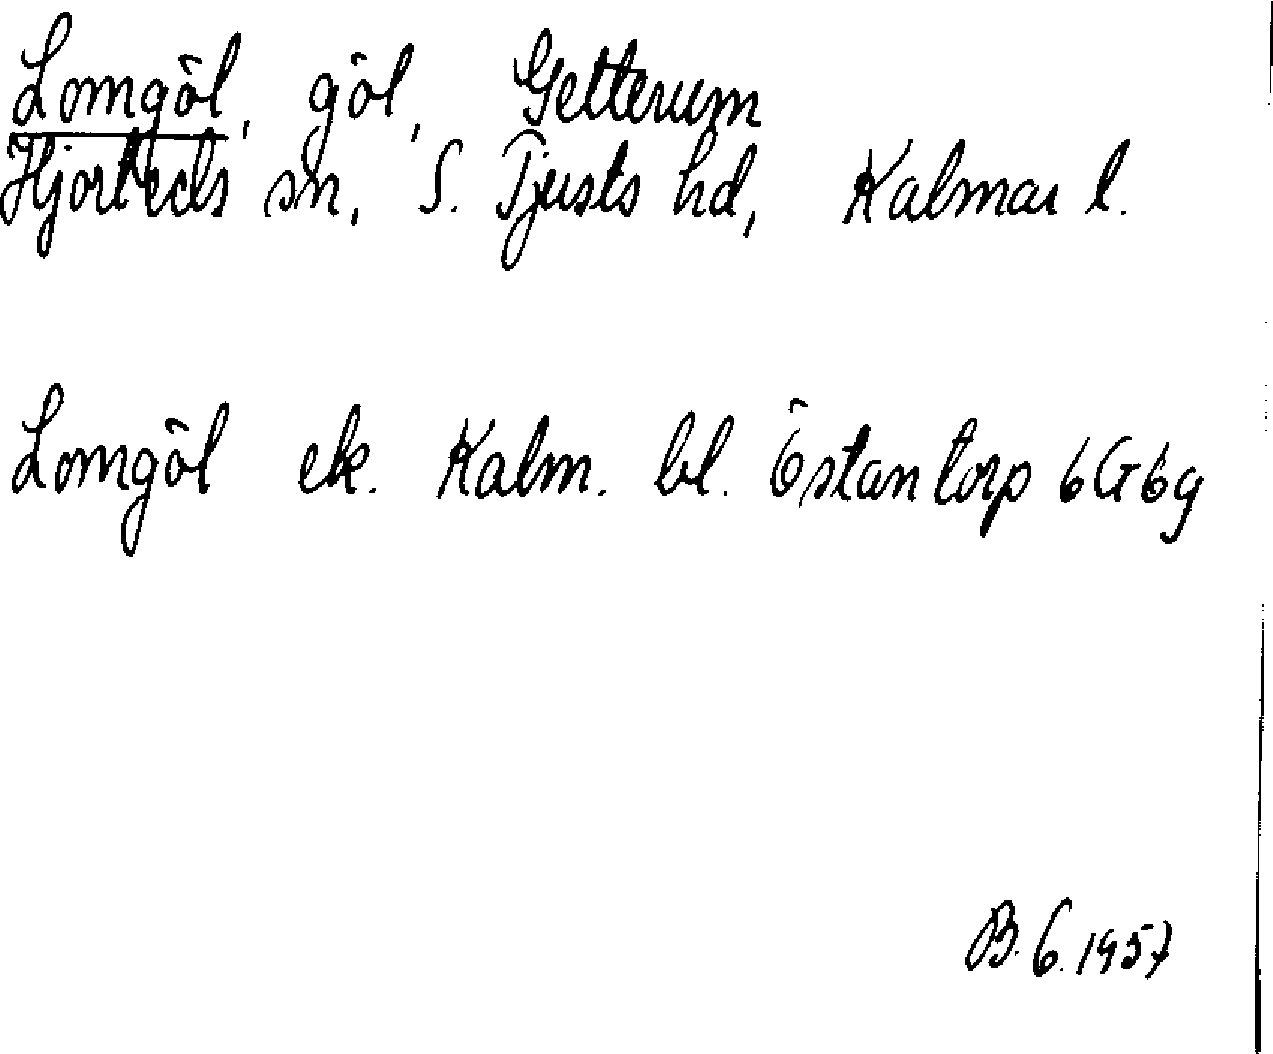 Lomgöl, göl, Getterum
Hjorteds sn, S. Tjusts hd, Kalmar l.
Lomgöl ek. Kalm. bl. Östantorp 6G6g
B.G. 1957